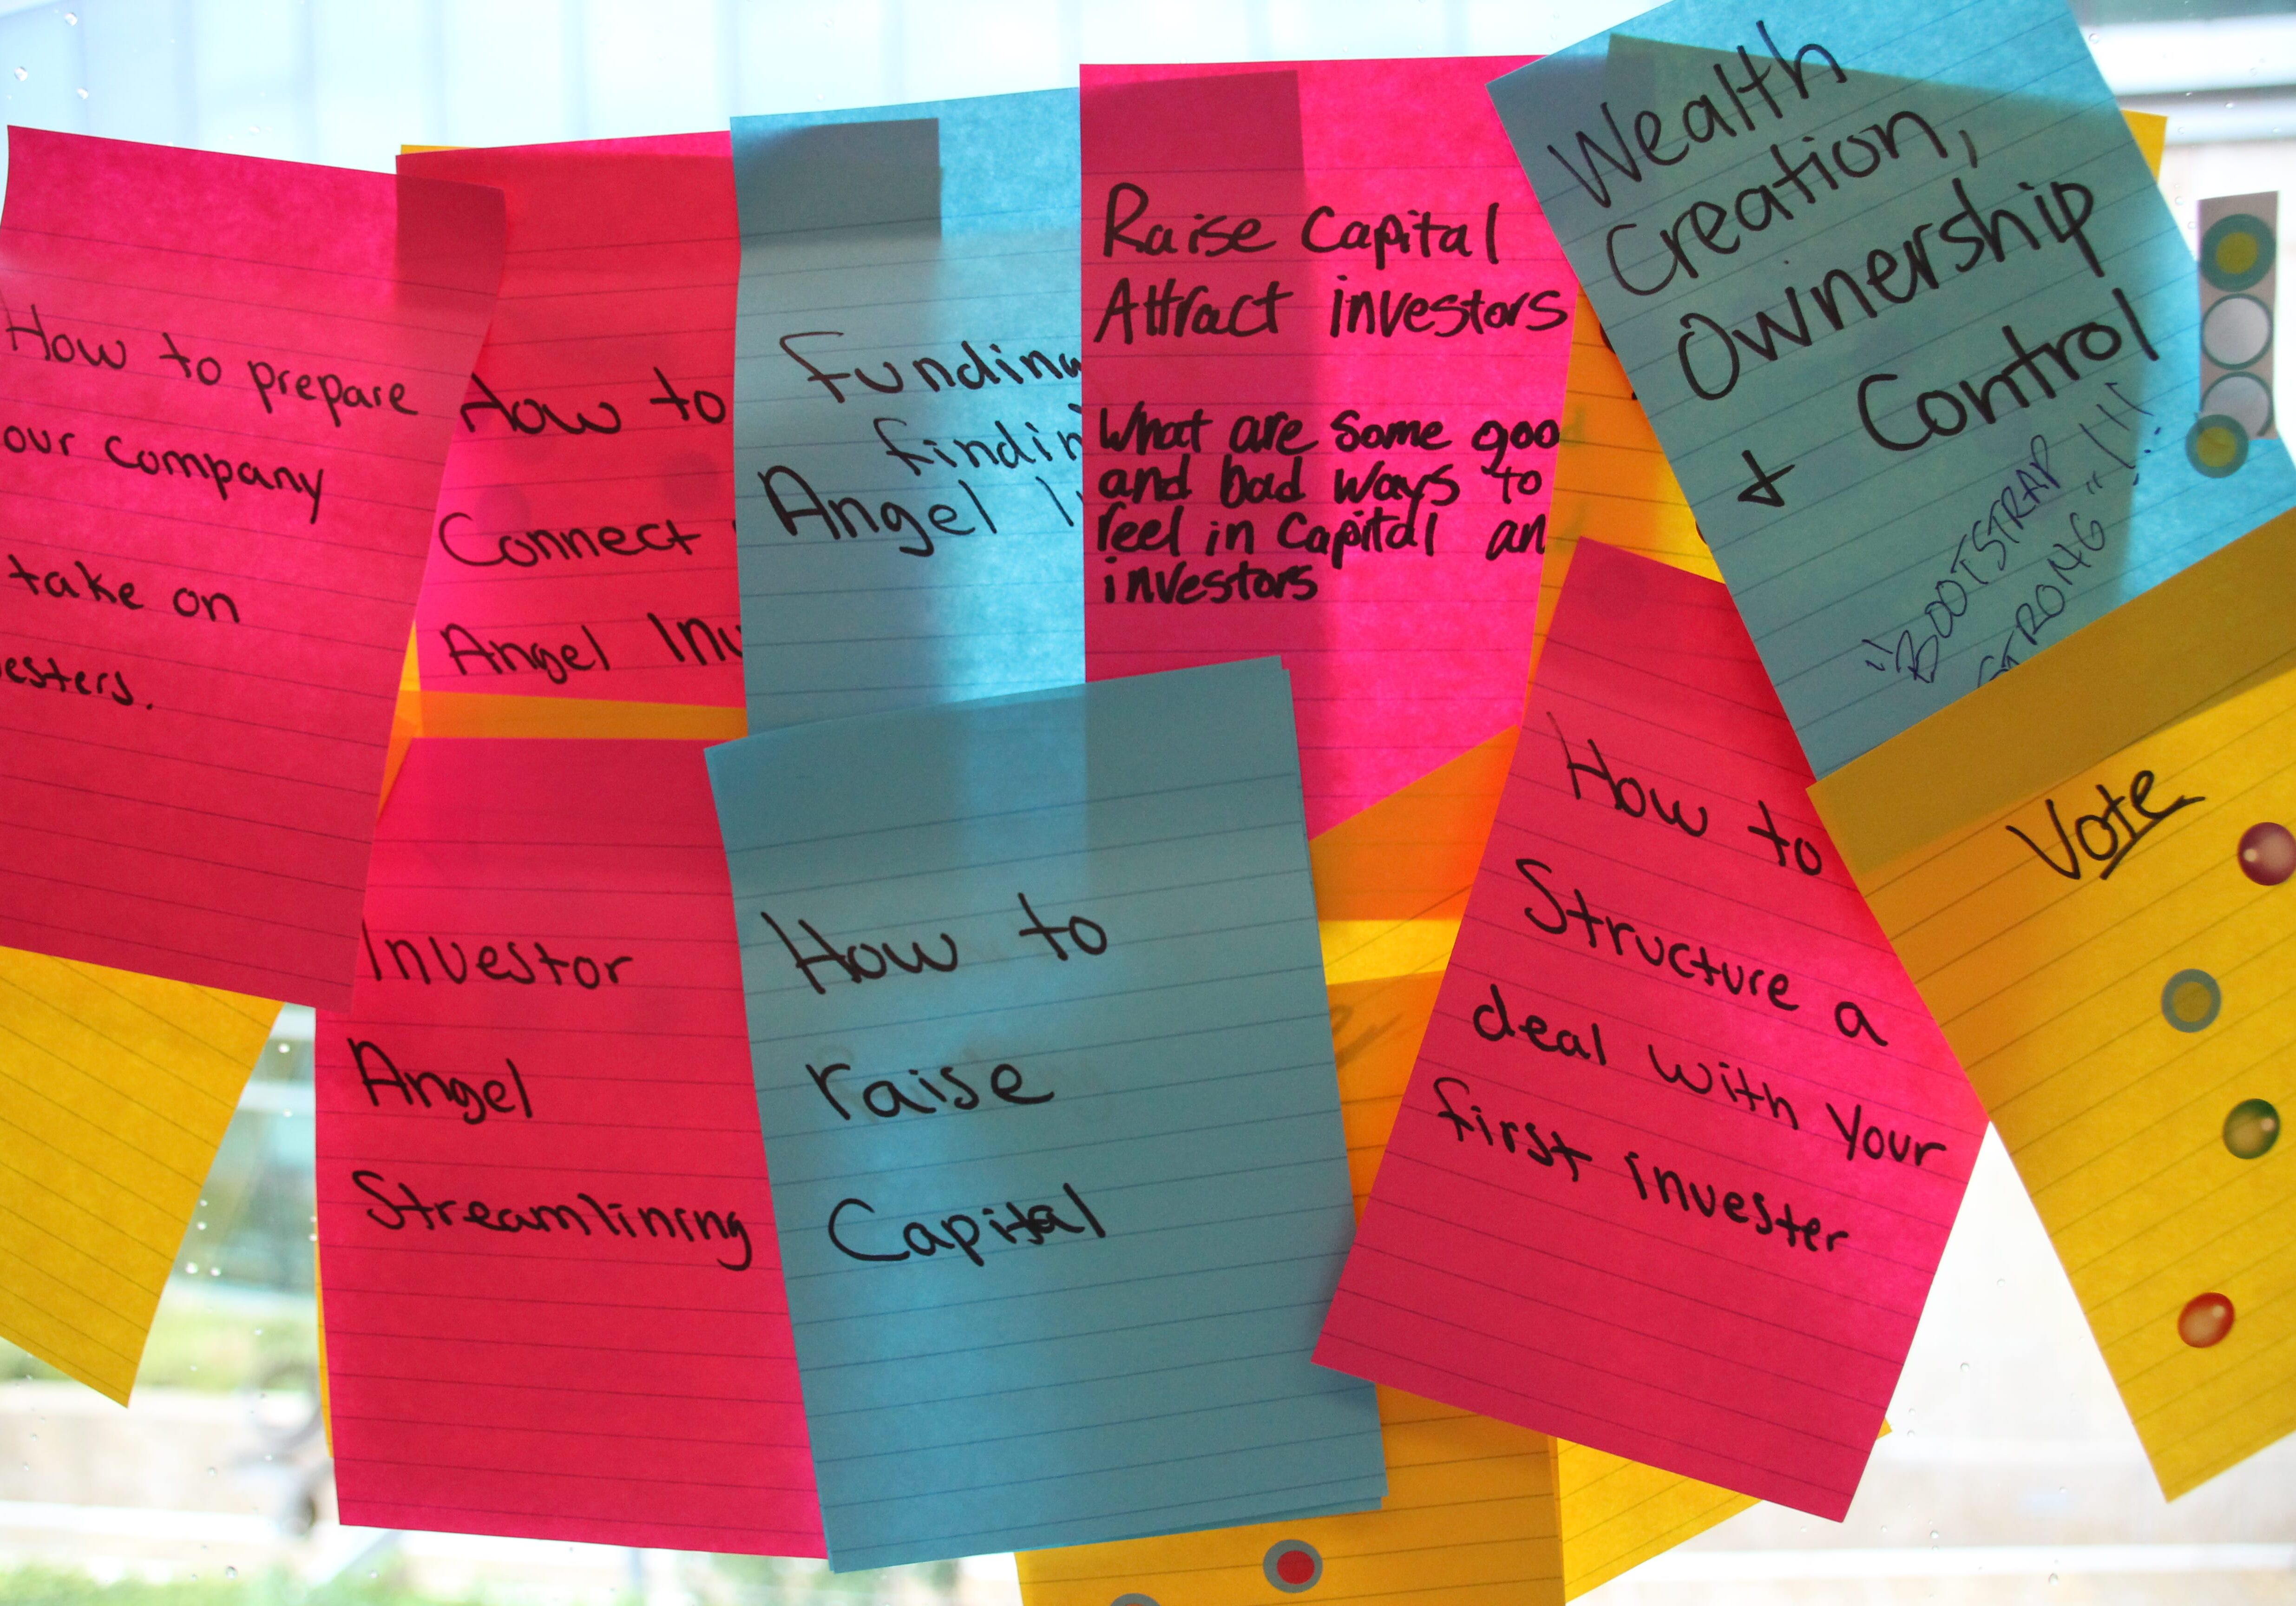 How to prepare
our company
take on
esters.
How to
Connect
Angel Inv
Funding
findin
Angel I
Raise Capital
Attract investors
What are some goo
and bad ways to
reel in Capital an
investors
Wealth
Creation,
Ownership
+ Control
"BOOTSTRAP
STRONG"!!!
Investor
Angel
Streamlining
How to
raise
Capital
How to
Structure a
deal with Your
first invester
Vote